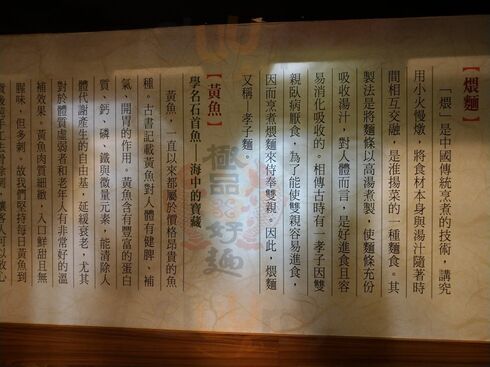 【煨麵】
「煨」是中國傳統烹煮的技術，講究
用小火慢燉，將食材本身與湯汁隨著時
間相互交融，是淮揚菜的一種麵食。其
製法是將麵條以高湯煮製，使麵條充份
吸收湯汁，對人體而言，是好進食且容
易消化吸收的。相傳古時有一孝子因雙
親臥病厭食，為了能使雙親容易進食，
因而烹煮煨麵來侍奉雙親。因此，煨麵
又稱「孝子麵」。
【黃魚】
學名石首魚 海中的寶藏
黃魚，一直以來都屬於價格昂貴的魚
種。古書記載黃魚對人體有健脾、補
氣、開胃的作用。黃魚含有豐富的蛋白
質、鈣、磷、鐵與微量元素，能清除人
體代謝產生的自由基，延緩衰老，尤其
對於體質虛弱者和老年人有非常好的溫
補效果。黃魚肉質細緻，入口鮮甜且無
腥味，但多刺。故我們堅持每日黃魚到
極品好麵